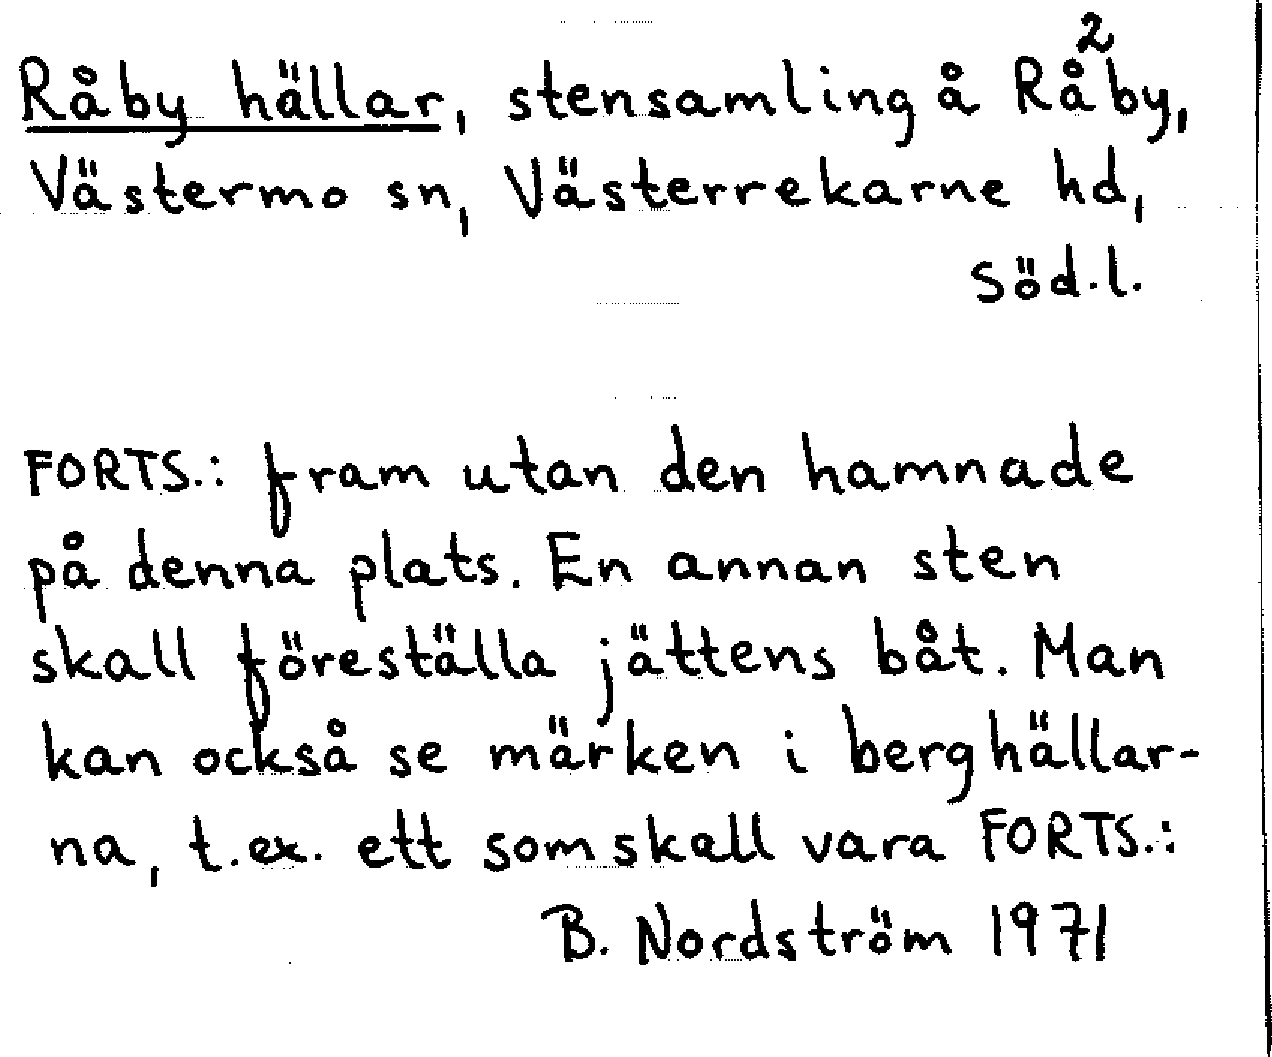 2
Råby hällar, stensamling å Råby,
Västermo sn, Västerrekarne hd,
Söd.l.
FORTS.: fram utan den hamnade
på denna plats. En annan sten
skall föreställa jättens båt. Man
kan också se märken i berghällar-
na, t.ex. ett som skall vara FORTS.:
B. Nordström 1971